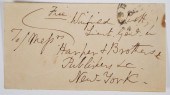 Free Winfield Scott
To/ Messrs
Harper & Brothers
Publishers &c
New York.